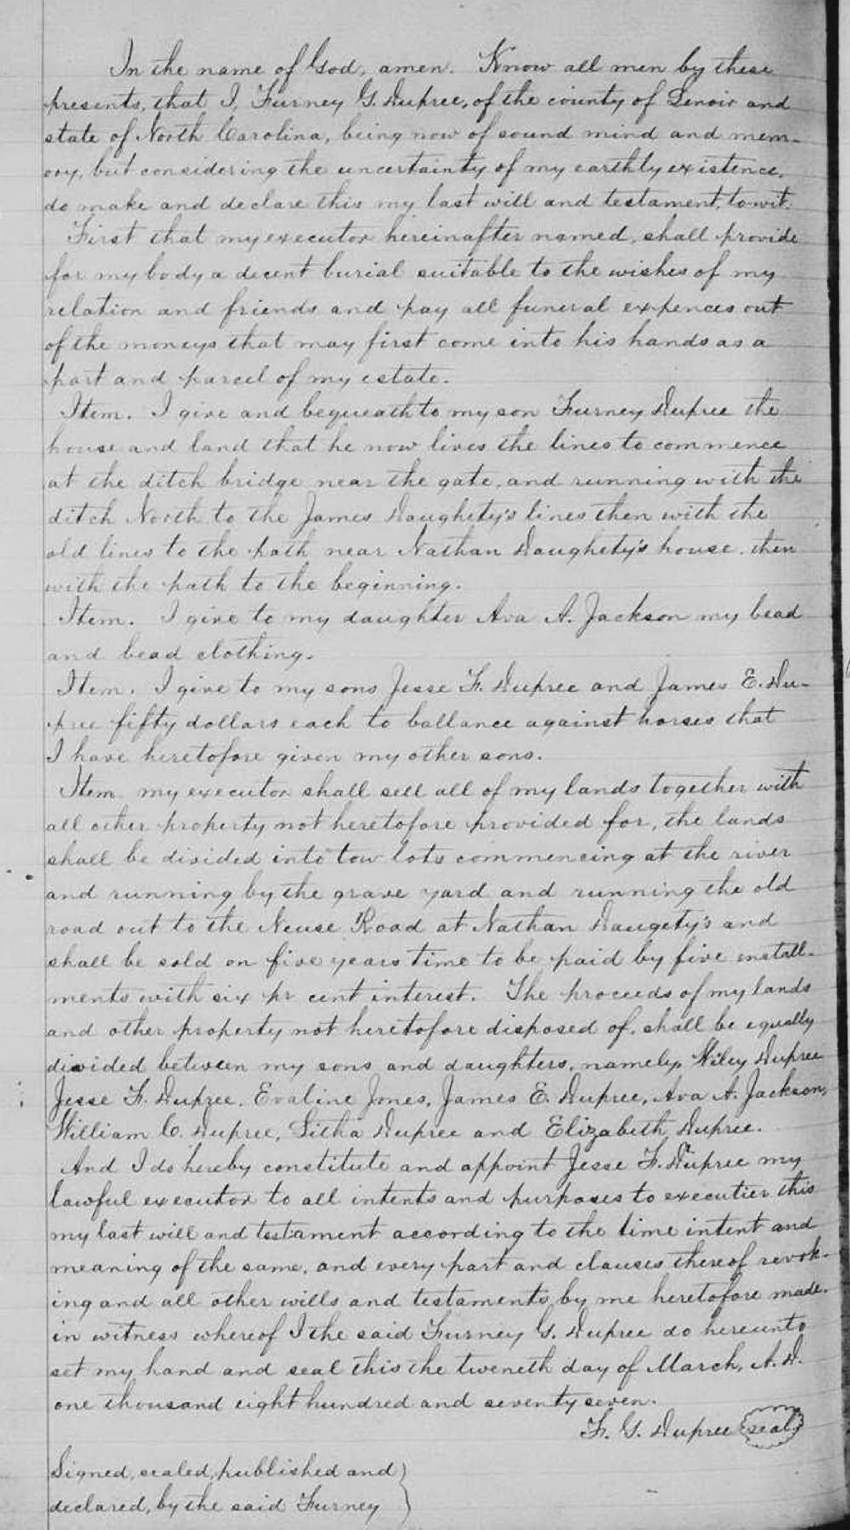 In the name of God, amen. Know all men by these
presents, that I, Furney G. Dupree, of the county of Lenoir and
state of North Carolina, being now of sound mind and mem-
ory, but considering the uncertainty of my earthly existence,
do make and declare this my last will and testament, to wit:
First that my executor hereinafter named, shall provide
for my body a decent burial suitable to the wishes of my
relation and friends and pay all funeral expences out
of the moneys that may first come into his hands as a
part and parcel of my estate.
Item. I give and bequeath to my son Furney Dupree the
house and land that he now lives the lines to commence
at the ditch bridge near the gate, and running with the
ditch North to the James Daughety's lines then with the
old lines to the path near Nathan Daughety's house. then
with the path to the beginning.
Item. I give to my daughter Ava A. Jackson my bead
and bead clothing.
Item. I give to my sons Jesse F. Dupree and James E. Du-
pree fifty dollars each to ballance against horses that
I have heretofore given my other sons.
Item my executor shall sell all of my lands together with
all other property not heretofore provided for, the lands
shall be divided into tow lots commencing at the river
and running by the grave yard and running the old
road out to the Neuse Road at Nathan Daugety's and
shall be sold on five years time to be paid by five install-
ments with six pr cent interest. The proceeds of my lands
and other property not heretofore disposed of, shall be equally
divided between my sons and daughters, namely, Wiley Dupree
Jesse F. Dupree, Evaline Jones, James E. Dupree, Ava A. Jackson,
William C. Dupree, Litha Dupree and Elizabeth Dupree.
And I do hereby constitute and appoint Jesse F. Dupree my
lawful executor to all intents and purposes to executier this
my last will and testament according to the time intent and
meaning of the same, and every part and clauses thereof revok-
ing and all other wills and testaments by me heretofore made.
in witness whereof I the said Furney G. Dupree do hereunto
set my hand and seal this the tweneth day of March, A.D.
one thousand eight hundred and seventy seven.
F. G. Dupree seal
Signed, sealed, published and
declared, by the said Furney